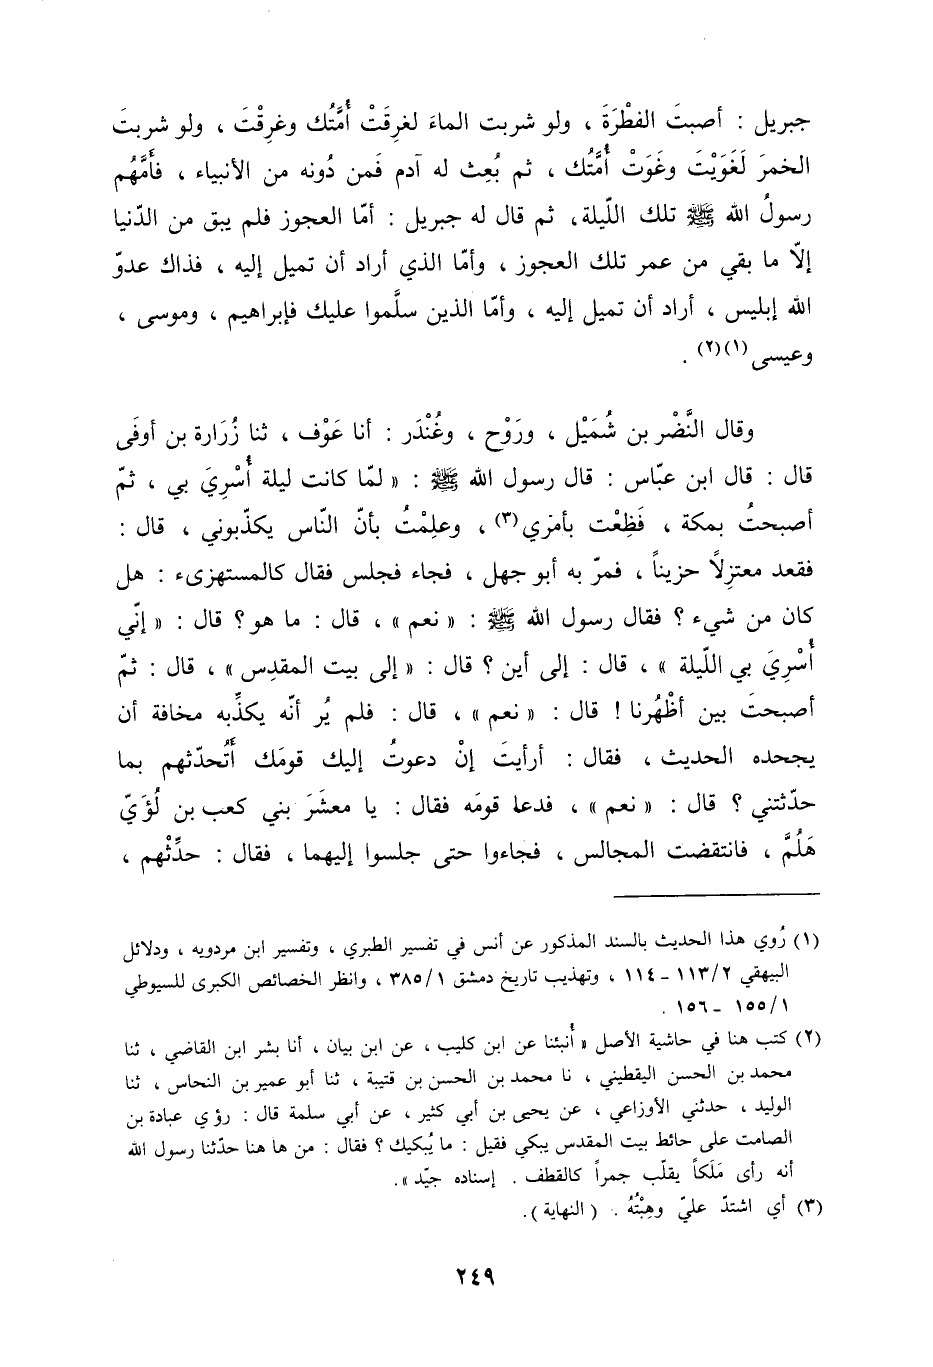 جبريل : أصبتَ الفطْرَةَ ، ولو شربت الماءَ لغرِقَتْ أُمَّتُك وغرِقْتَ ، ولو شربتَ
الخمرَ لَغَوَيْتَ وغَوَتْ أُمَّتُك ، ثم بُعِث له آدم فَمن دُونه من الأنبياء ، فأَمَّهُم
رسولُ الله ﷺ تلك اللّيلة، ثم قال له جبريل : أمّا العجوز فلم يبق من الدّنيا
إلّا ما بقي من عمر تلك العجوز ، وأمّا الذي أراد أن تميل إليه ، فذاك عدوّ
الله إبليس ، أراد أن تميل إليه ، وأمّا الذين سلَّموا عليك فإبراهيم ، وموسى ،
وعيسى(١)(٢) .
وقال النَّضْر بن شُمَيْل ، ورَوْح ، وغُنْدَر : أنا عَوْف ، ثنا زُرَارة بن أوفَى
قال : قال ابن عبّاس : قال رسول الله ﷺ : « لمّا كانت ليلة أُسْرِيَ بي ، ثمّ
أصبحتُ بمكة ، فَظِعْت بأمَري(٣) ، وعلِمْتُ بأنّ النّاس يكذّبوني ، قال :
فقعد معتزِلاً حزيناً ، فمرّ به أبو جهل ، فجاء فجلس فقال كالمستهزىء : هل
كان من شيء ؟ فقال رسول الله ﷺ : « نعم » ، قال : ما هو ؟ قال : « إنّي
أُسْرِيَ بي اللّيلة » ، قال : إلى أين ؟ قال : « إلى بيت المقدِس » ، قال : ثمّ
أصبحتَ بين أظْهُرنا ! قال : « نعم » ، قال : فلم يُر أنّه يكذِّبه مخافة أن
يجحده الحديث ، فقال : أرأيتَ إنْ دعوتُ إليك قومَك أَتُحدّثهم بما
حدّثتني ؟ قال : « نعم » ، فدعا قومَه فقال : يا معشَرَ بني كعب بن لُؤَيّ
هَلُمَّ ، فانتقضت المجالس ، فجاءوا حتى جلسوا إليهما ، فقال : حدِّثْهم ،
(١) رُوي هذا الحديث بالسند المذكور عن أنس في تفسير الطبري ، وتفسير ابن مردويه ، ودلائل
البيهقي ٢/١١٣ - ١١٤ ، وتهذيب تاريخ دمشق ١/٣٨٥ ، وانظر الخصائص الكبرى للسيوطي
١/١٥٥ - ١٥٦ .
(٢) كتب هنا في حاشية الأصل « أُنبئنا عن ابن كليب ، عن ابن بيان ، أنا بشر ابن القاضي ، ثنا
محمد بن الحسن اليقطيني ، نا محمد بن الحسن بن قتيبة ، ثنا أبو عمير بن النحاس ، ثنا
الوليد ، حدثني الأوزاعي ، عن يحيى بن أبي كثير ، عن أبي سلمة قال : رؤي عبادة بن
الصامت على حائط بيت المقدس يبكي فقيل : ما يُبكيك ؟ فقال : من ها هنا حدّثنا رسول الله
أنه رأى مَلَكاً يقلّب جمراً كالقطف . إسناده جيّد ».
(٣) أي اشتدّ عليّ وهِبْتُهُ . ( النهاية ).
٢٤٩